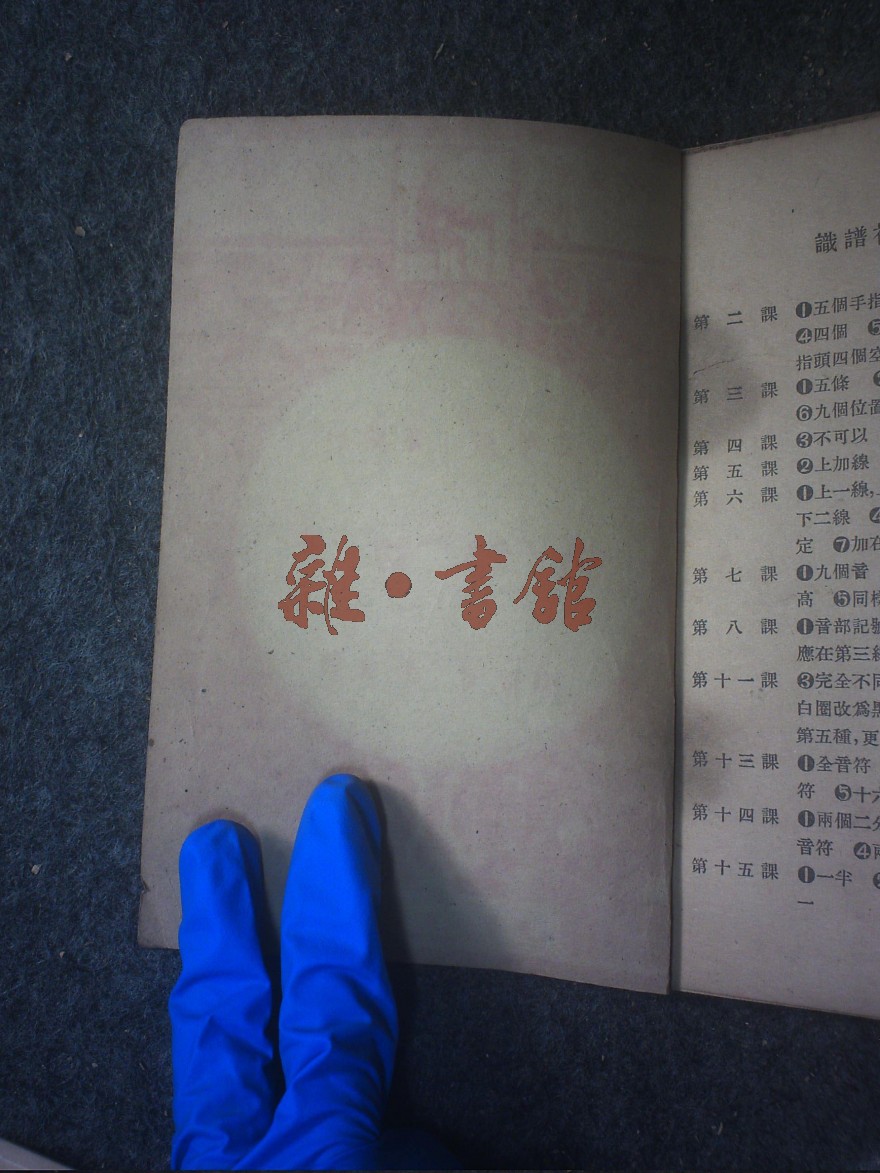 雜・書館
識譜
第二課 ❶五個手指
❹四個 ❺
指頭四個空
第三課 ❶五條
❻九個位置
第四課 ❸不可以
第五課 ❷上加線
第六課 ❶上一線,
下二線 ❹
定 ❼加右
第七課 ❶九個音
高 ❺同樣
第八課 ❶音部記號
應在第三線
第十一課 ❸完全不同
白圈改爲黑
第五種,更
第十三課 ❶全音符
符 ❺十六
第十四課 ❶兩個二分
音符 ❹兩
第十五課 ❶一半
一